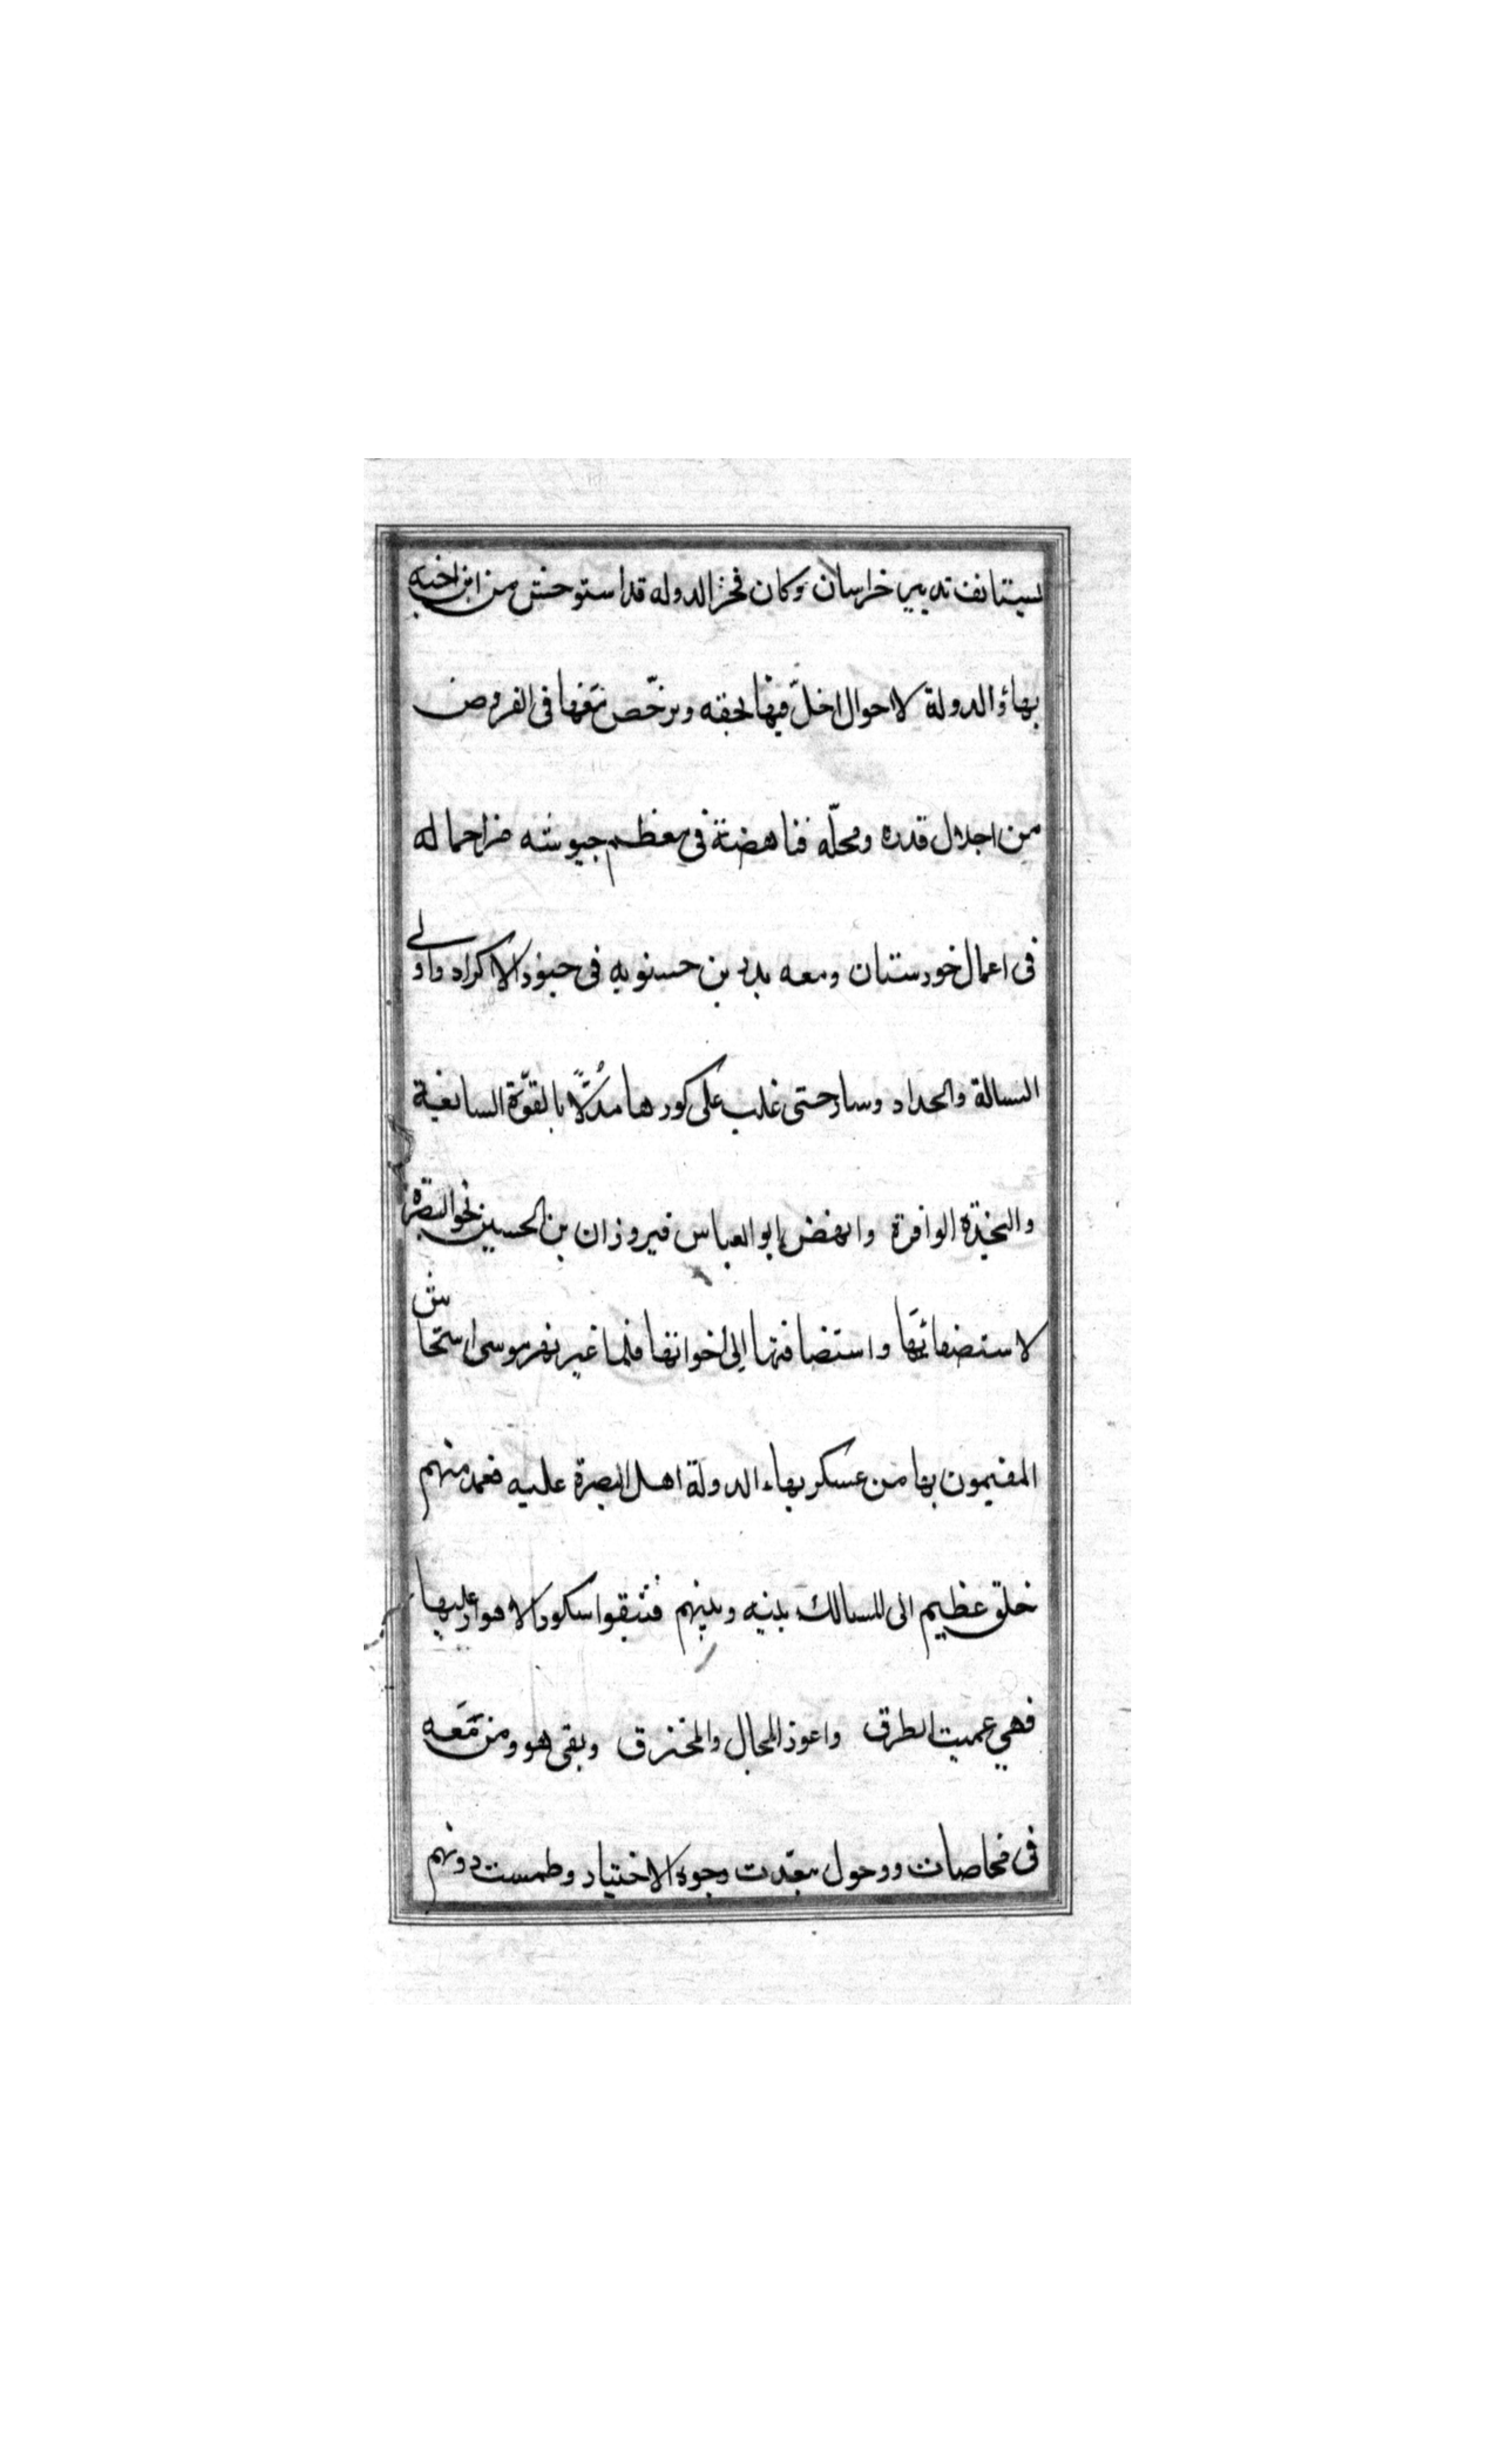 يستانف تدبير خراسان وكان فخر الدوله قد استوحش من ابن اخيه
بهاؤ الدولة لاحوال اخلّ فيها بحقه وترخّص معها فى الفروض
من اجلال قدره ومحلّه فناهضة فى معظم جيوشه مزاحما له
فى اعمال خورستان ومعه بدر بن حسنويه فى جنود الاكراد واولى
البسالة والحداد وسار حتى غلب على كورها مُدلًّا بالقوّة السابغية
والنجدة الوافرة وانهض ابو العباس فيروزان بن الحسين نحو البصرة
لاستضفائها واستضافتها الى اخواتها فلما عبر نهر موسى استحاش
المقيمون بها من عسكر بهاء الدولة اهل البصرة عليه فعمد منهم
خلق عظيم الى المسالك بينه وبينهم فثبقوا سكور الاهواز عليها
فهي عميت الطرق واعوذ المجال والمخترق وبقى هو ومن مَعَه
فى مخاصات ووحول سعدت وجوه الاختيار وطمست دونهم